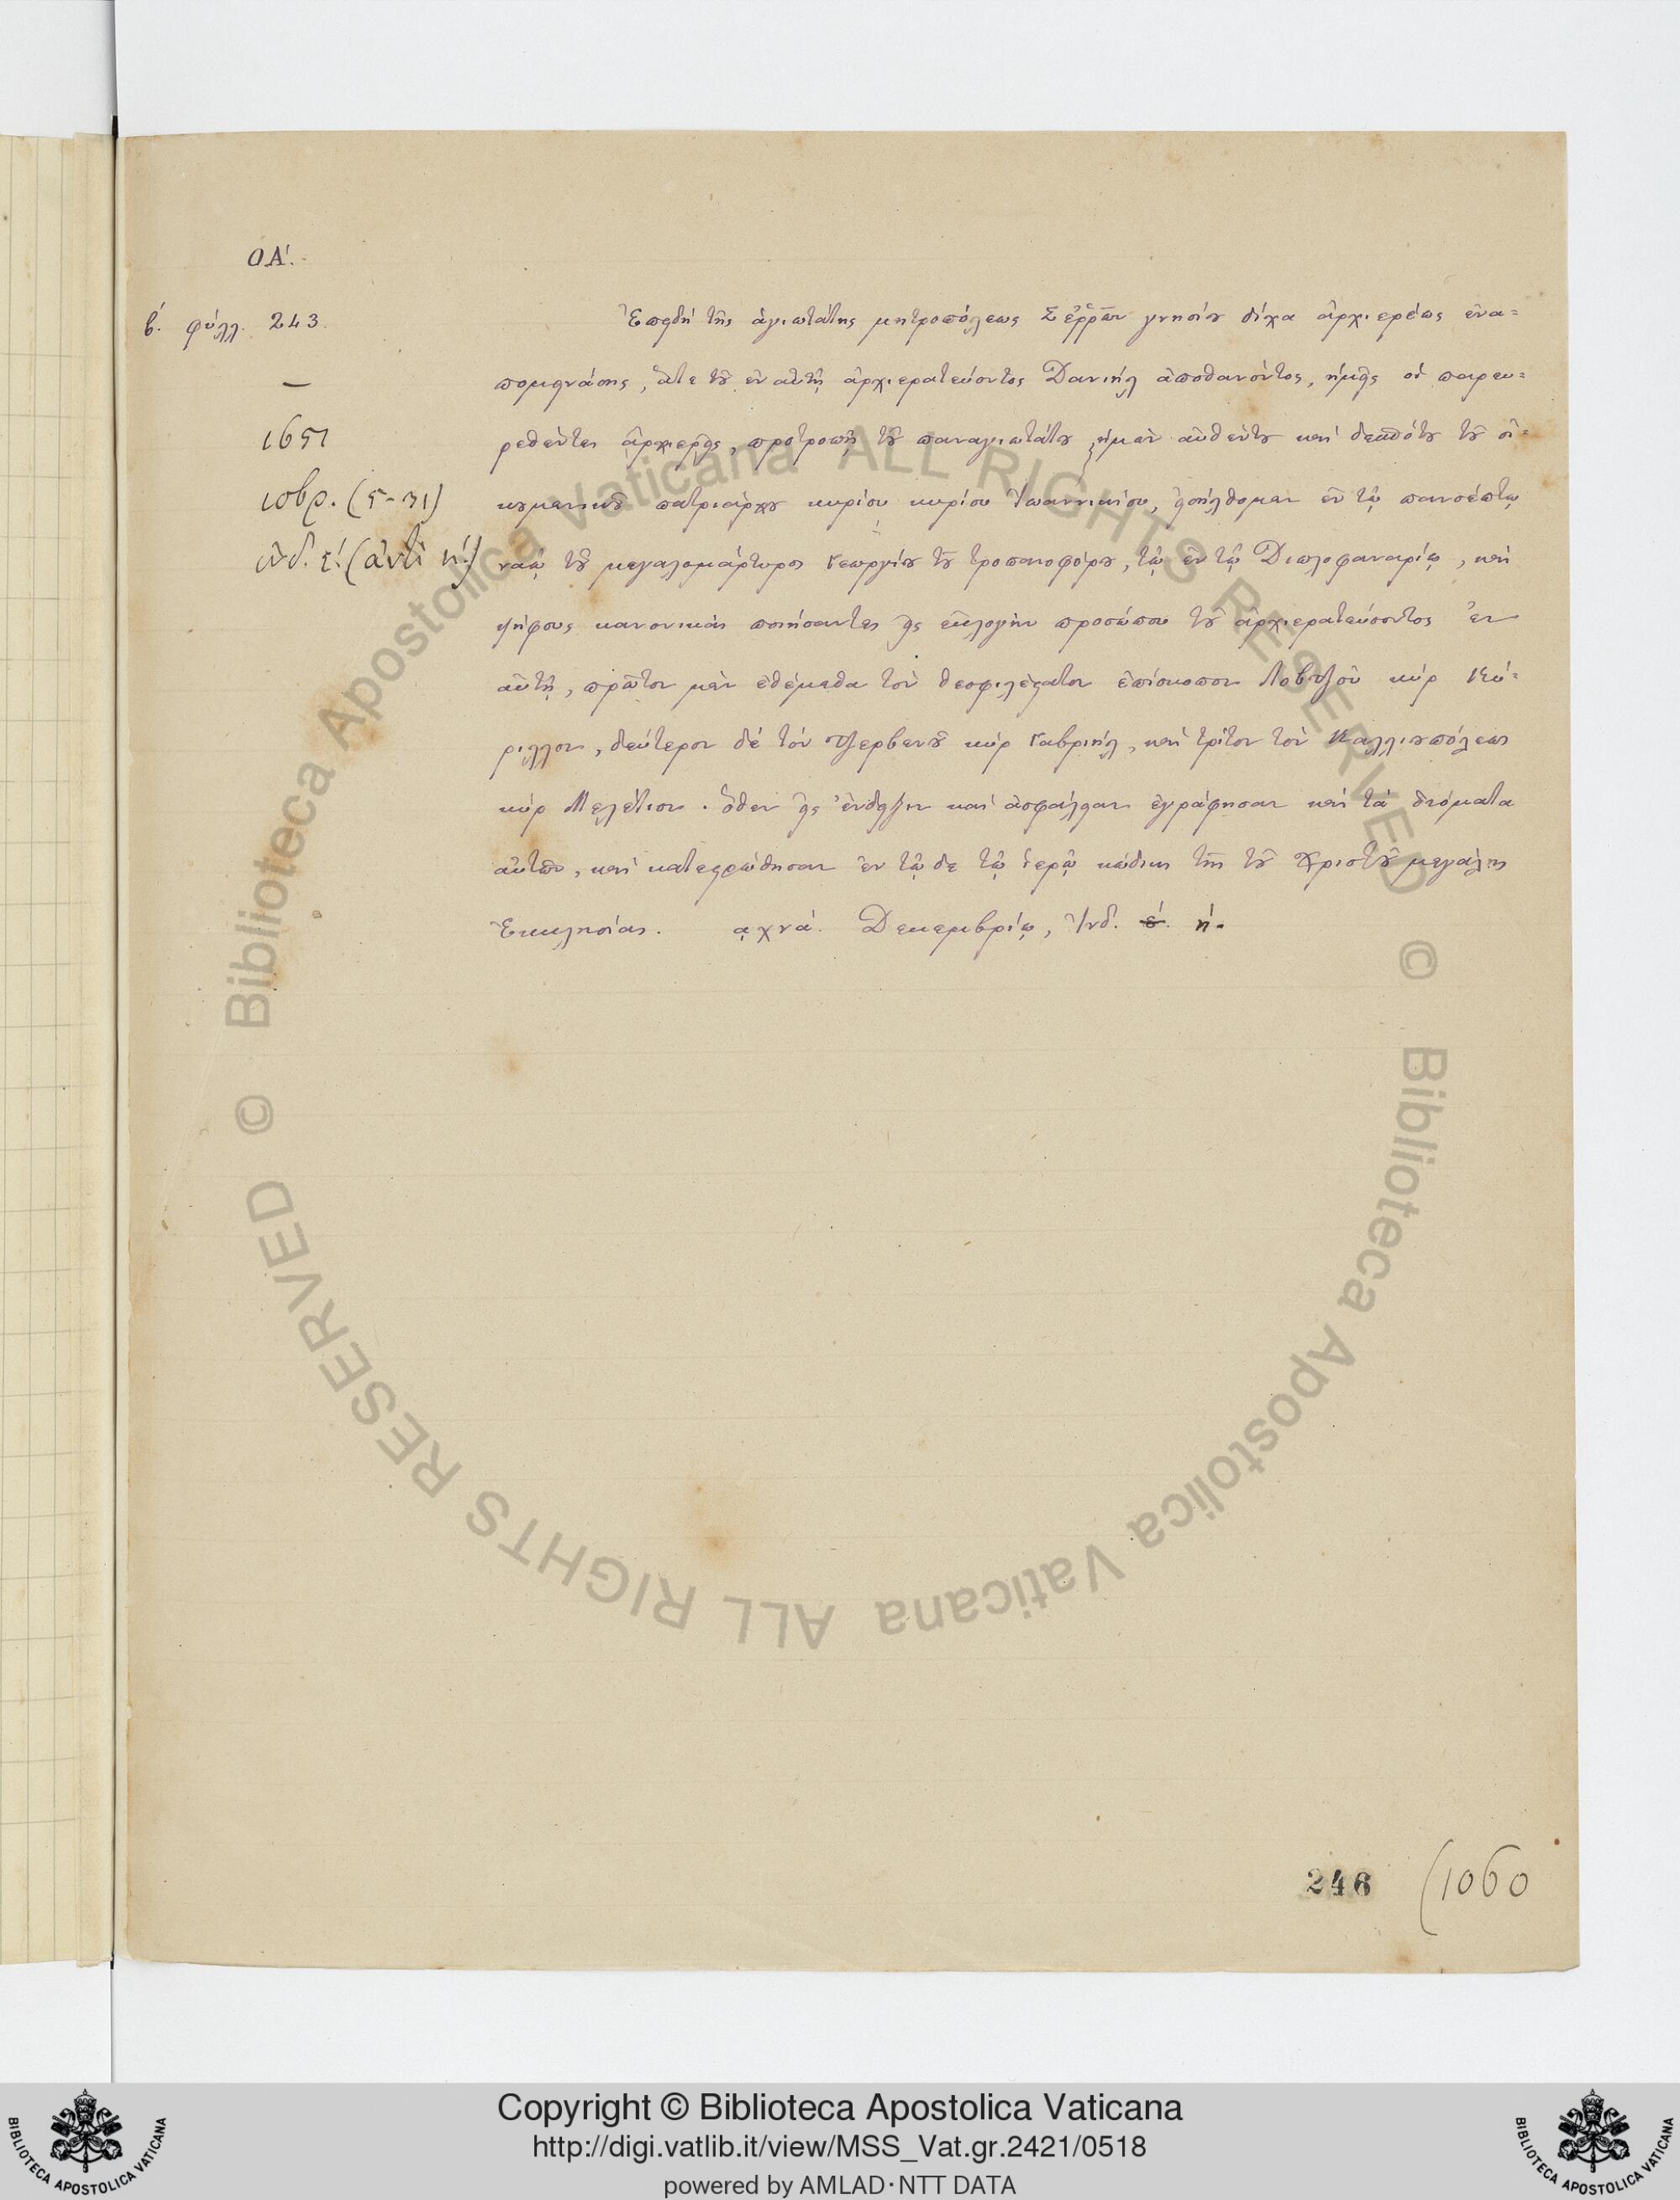 ΟΑ΄.
β΄. φύλλ. 243.
—
1651
ἰνδ. ε΄. (ἀντὶ η΄.)
Ἐπειδὴ τῆς ἁγιωτάτης μητροπόλεως Σερρῶν γνησίου δίχα ἀρχιερέως ἐνα=
πομεινάσης, ἅτε τοῦ ἐν αὐτῇ ἀρχιερατεύοντος Δανιὴλ ἀποθανόντος, ἡμεῖς οἱ παρευ=
ρεθέντες ἀρχιερεῖς, προτροπῇ τοῦ παναγιωτάτου ἡμῶν αὐθέντου καὶ δεσπότου τοῦ οἰ=
κουμενικοῦ πατριάρχου κυρίου κυρίου Ἰωαννικίου, εἰσήλθομεν ἐν τῷ πανσέπτῳ
ναῷ τοῦ μεγαλομάρτυρος Γεωργίου τοῦ τροπαιοφόρου, τῷ ἐν τῷ Διπλοφαναρίῳ, καὶ
ψήφους κανονικὰς ποιήσαντες εἰς ἐκλογὴν προσώπου τοῦ ἀρχιερατεύσοντος ἐν
αὐτῇ, πρῶτον μὲν ἐθέμεθα τὸν θεοφιλέστατον ἐπίσκοπον Λοβιτζοῦ κὺρ Κύ=
ριλλον, δεύτερον δὲ τὸν Τζερβενοῦ κὺρ Γαβριήλ, καὶ τρίτον τὸν Καλλιουπόλεως
κὺρ Μελέτιον. ὅθεν εἰς ἔνδειξιν καὶ ἀσφάλειαν ἐγράφησαν καὶ τὰ ὀνόματα
αὐτῶν, καὶ κατεστρώθησαν ἐν τῷδε τῷ ἱερῷ κώδικι τῆς τοῦ Χριστοῦ μεγάλης
Ἐκκλησίας. ͵αχνά. Δεκεμβρίῳ, Ἰνδ. ε΄. ή.
246 (1060
© Biblioteca Apostolica Vaticana ALL RIGHTS RESERVED
© Biblioteca Apostolica Vaticana ALL RIGHTS RESERVED
Copyright © Biblioteca Apostolica Vaticana
http://digi.vatlib.it/view/MSS_Vat.gr.2421/0518
powered by AMLAD·NTT DATA
BIBLIOTECA APOSTOLICA VATICANA
BIBLIOTECA APOSTOLICA VATICANA